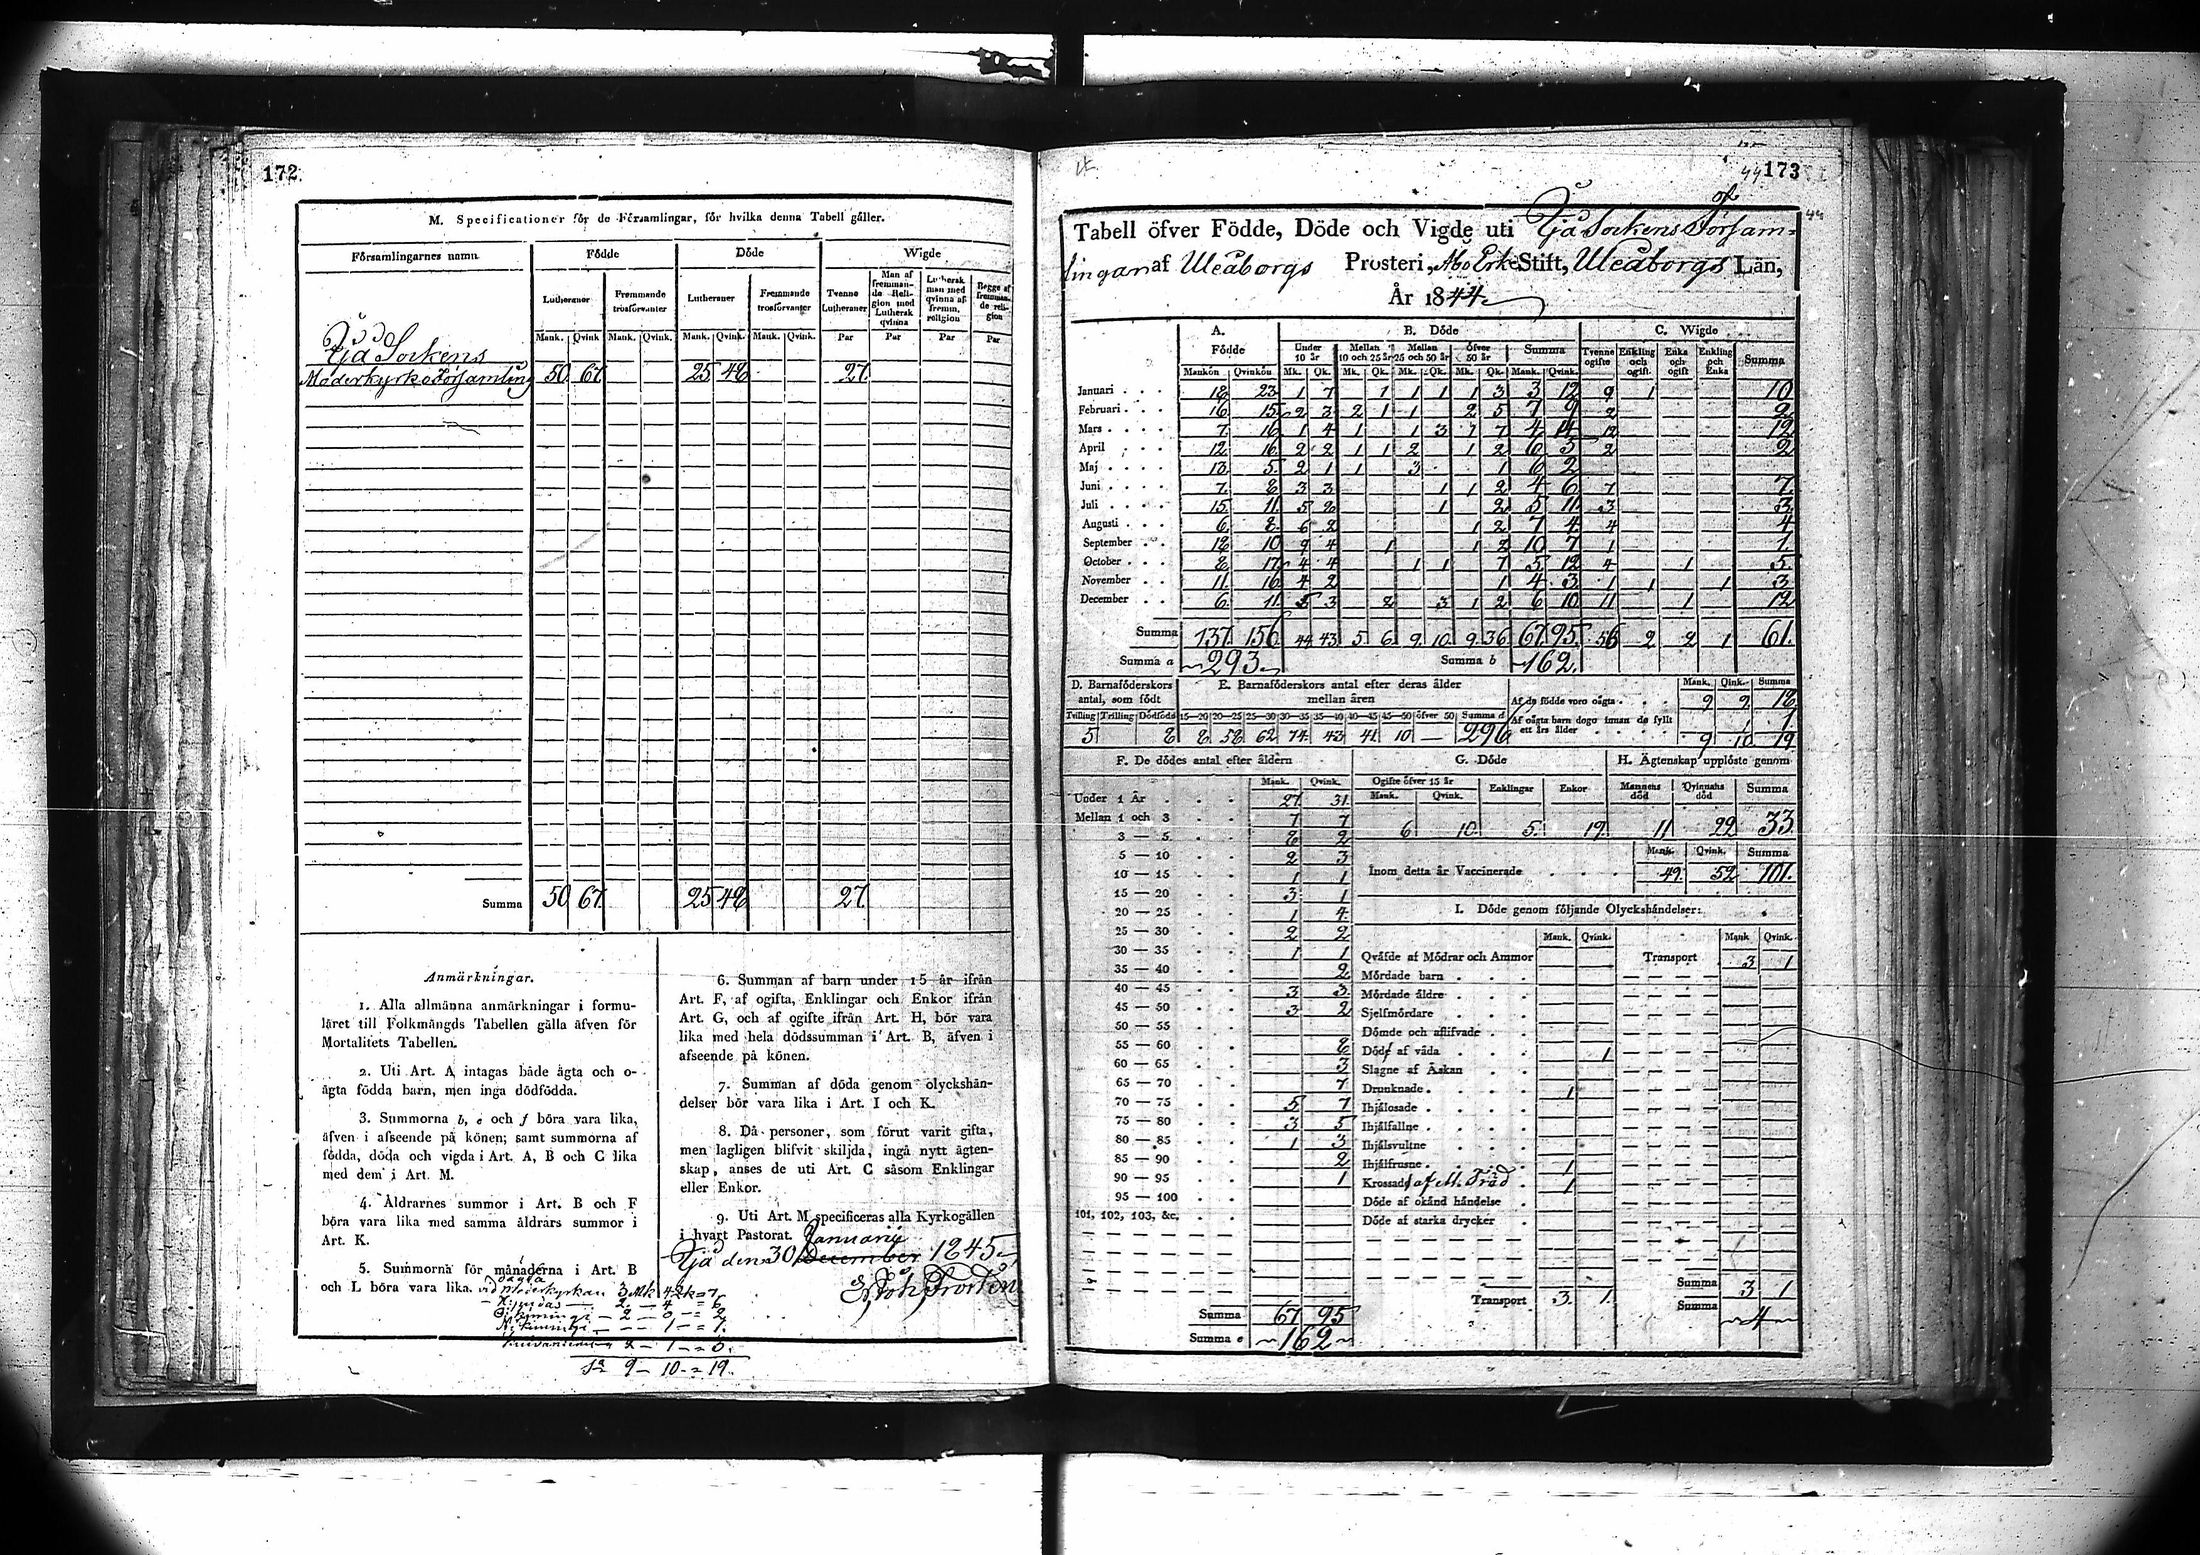 172
M. Specificationer för de Församlingar, för hvilka denna Tabell gäller.
Församlingarnes namn Födde Döde Wigde
Lutheraner Främmande trosförvanter Lutheraner Främmande trosförvanter Tvenne Lutheraner Man af fremmande Religion med Luthersk qvinna Luthersk man med qvinna af fremm. religion Begge af fremmande religion
Mank. Qvink Mank. Qvink. Mank. Qvink. Mank. Qvink. Par Par Par Par
Ijå Sockens
Moderkyrko Församling 50 67 25 48 27.
Summa 50 67 25 48 27.
Anmärkningar.
1. Alla allmänna anmärkningar i formu-
läret till Folkmängds Tabellen gälla äfven för
Mortalitets Tabellen.
2. Uti Art. A intagas både ägta och o-
ägta födda barn, men inga dödfödda.
3. Summorna b, e och f böra vara lika,
äfven i afseende på könen; samt summorna af
födda, döda och vigda i Art. A, B och C lika
med dem i Art. M.
4. Åldrarnes summor i Art. B och F
böra vara lika med samma åldrars summor i
Art. K.
5. Summorna för månaderna i Art. B
och L böra vara lika.
6. Summan af barn under 15 år ifrån
Art. F, af ogifta, Enklingar och Enkor ifrån
Art. G, och af ogifte ifrån Art. H, bör vara
lika med hela dödssumman i Art. B, äfven i
afseende på könen.
7. Summan af döda genom olyckshän-
delser bör vara lika i Art. I och K.
8. Då personer, som förut varit gifta,
men lagligen blifvit skiljda, ingå nytt ägten-
skap, anses de uti Art. C såsom Enklingar
eller Enkor.
9. Uti Art. M specificeras alla Kyrkogällen
i hvart Pastorat.
January
Ijå den 30 December 1845
Sa 9 — 10 — = 19.
173
Tabell öfver Födde, Döde och Vigde uti Ijå Sockens Försam-
lingar af Uleåborgs Prosteri, Åbo Erke Stift, Uleåborgs Län,
År 1844
A. B. Döde C. Wigde
Födde Under 10 år Mellan 10 och 25 år Mellan 25 och 50 år Öfver 50 år Summa Tvenne ogifte Enkling och ogift Enka och ogift Enkling och Enka Summa
Mankön Qvinkön Mk. Qk. Mk. Qk. Mk. Qk. Mk. Qk. Mank. Qvink.
Januari 18 23 1 7 1 1 1 1 3 3 12 9 1 10
Februari 16 15 2 3 2 1 1 2 5 7 9 2 2
Mars 7 16 1 4 1 1 3 1 7 4 14 12 12
April 12 16 2 2 1 1 2 1 2 6 5 2 2
Maj 13 5 2 1 1 3 1 6 2
Juni 7 8 3 3 1 1 2 4 6 7 7
Juli 15 11 5 8 1 2 5 11 3 3
Augusti 6 8 6 2 1 2 7 4 4 4
September 18 10 9 4 1 1 2 10 7 1 1
October 8 17 4 4 1 1 7 5 12 4 1 5
November 11 16 4 2 1 4 3 1 1 1 3
December 6 11 5 3 2 3 1 2 6 10 11 1 12
Summa 137 156 44 43 5 6 9 10 9 36 67 95 56 2 2 1 61.
Summa a 293 Summa b 162.
D. Barnaföderskors antal, som födt E. Barnaföderskors antal efter deras ålder mellan åren Mank. Qink. Summa
Af de födde voro oägta 9 9 18
Tvilling Trilling Dödföds 15—20 20—25 25—30 30—35 35—40 40—45 45—50 öfver 50 Summa d
Af oägta barn dogo innan de fyllt ett års ålder 1 1
5 8 8 58 62 74 43 41 10 — 296 9 10 19
F. De dödes antal efter åldern G. Döde H. Ägtenskap upplöste genom
Mank. Qvink. Ogifte öfver 15 år Mank. Qvink. Enklingar Enkor Mannens död Qvinnans död Summa
Under 1 År 27 31
Mellan 1 och 3 7 7
3 — 5 8 2 6 10 5 19 11 22 33
5 — 10 2 3 Mank. Qvink. Summa
10 — 15 1 1 Inom detta år Vaccinerade 49 52 101.
15 — 20 3 1
20 — 25 1 4 I. Döde genom följande Olyckshändelser:
25 — 30 2 2 Mank. Qvink. Mank Qvink.
30 — 35 1 1 Qväfde af Mödrar och Ammor Transport 3 1
35 — 40 2 Mördade barn
40 — 45 3 3 Mördade äldre
45 — 50 3 2 Sjelfmördare
50 — 55 Dömde och aflifvade
55 — 60 8 Död af våda 1
60 — 65 3 Slagne af Åskan
65 — 70 7 Drunknade 1
70 — 75 5 7 Ihjälosade
75 — 80 3 5 Ihjälfallne
80 — 85 1 3 Ihjälsvultne
85 — 90 2 Ihjälfrusne 1
90 — 95 1 Krossad af Träd 1
95 — 100 Döde af okänd händelse
101, 102, 103, &c. Döde af starka drycker
Summa 3 1
Transport 3 1
Summa 4
Summa 67 95
Summa e 162